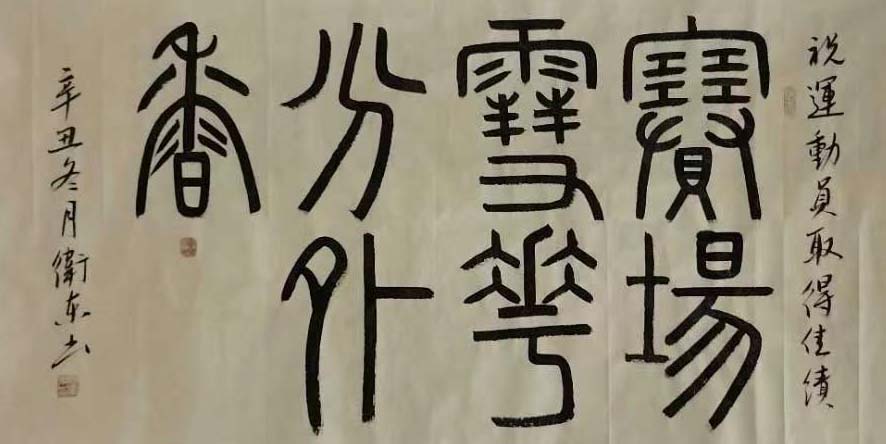 祝運動員取得佳績
賽場
雪華
分外
香
辛丑冬月衛东书